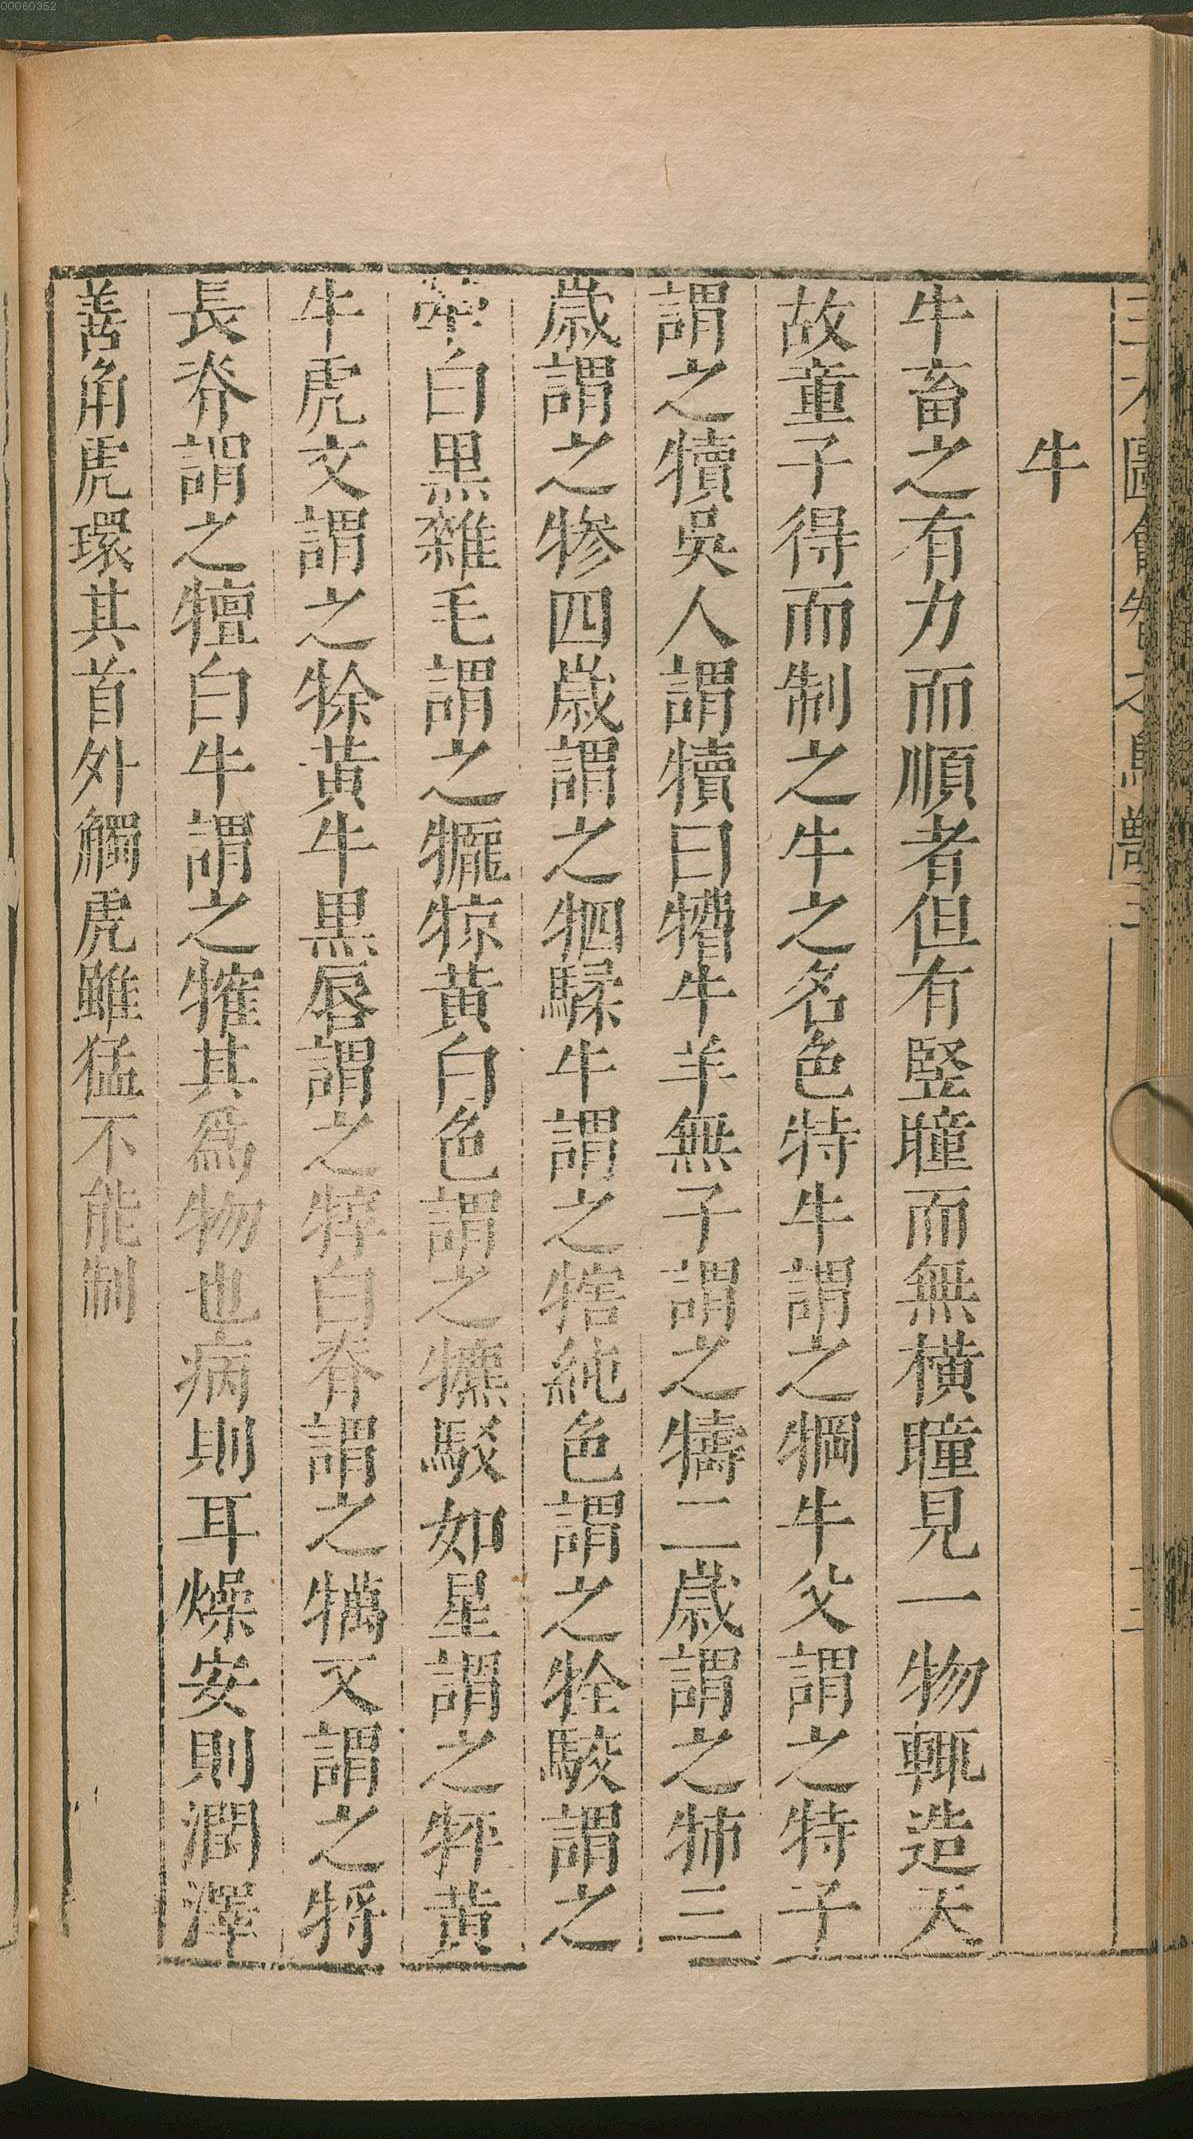 00060352
牛
牛畜之有力而順者但有竪瞳而無橫瞳見一物輒造天
故童子得而制之牛之名色特牛謂之犅牛父謂之特子
謂之犢吳人謂犢曰㹛牛羊無子謂之犞二歲謂之㸬三
歲謂之犙四歲謂之牭騬牛謂之犗純色謂之牷駮謂之
犖白黑雜毛謂之㹛㹁黃白色謂之犥駁如星謂之㸹黃
牛虎文謂之㸿黃牛黑唇謂之犉白脊謂之犡又謂之㸹
長脊謂之㹔白牛謂之㹊其爲物也病則耳燥安則潤澤
善角虎環其首外觸虎雖猛不能制